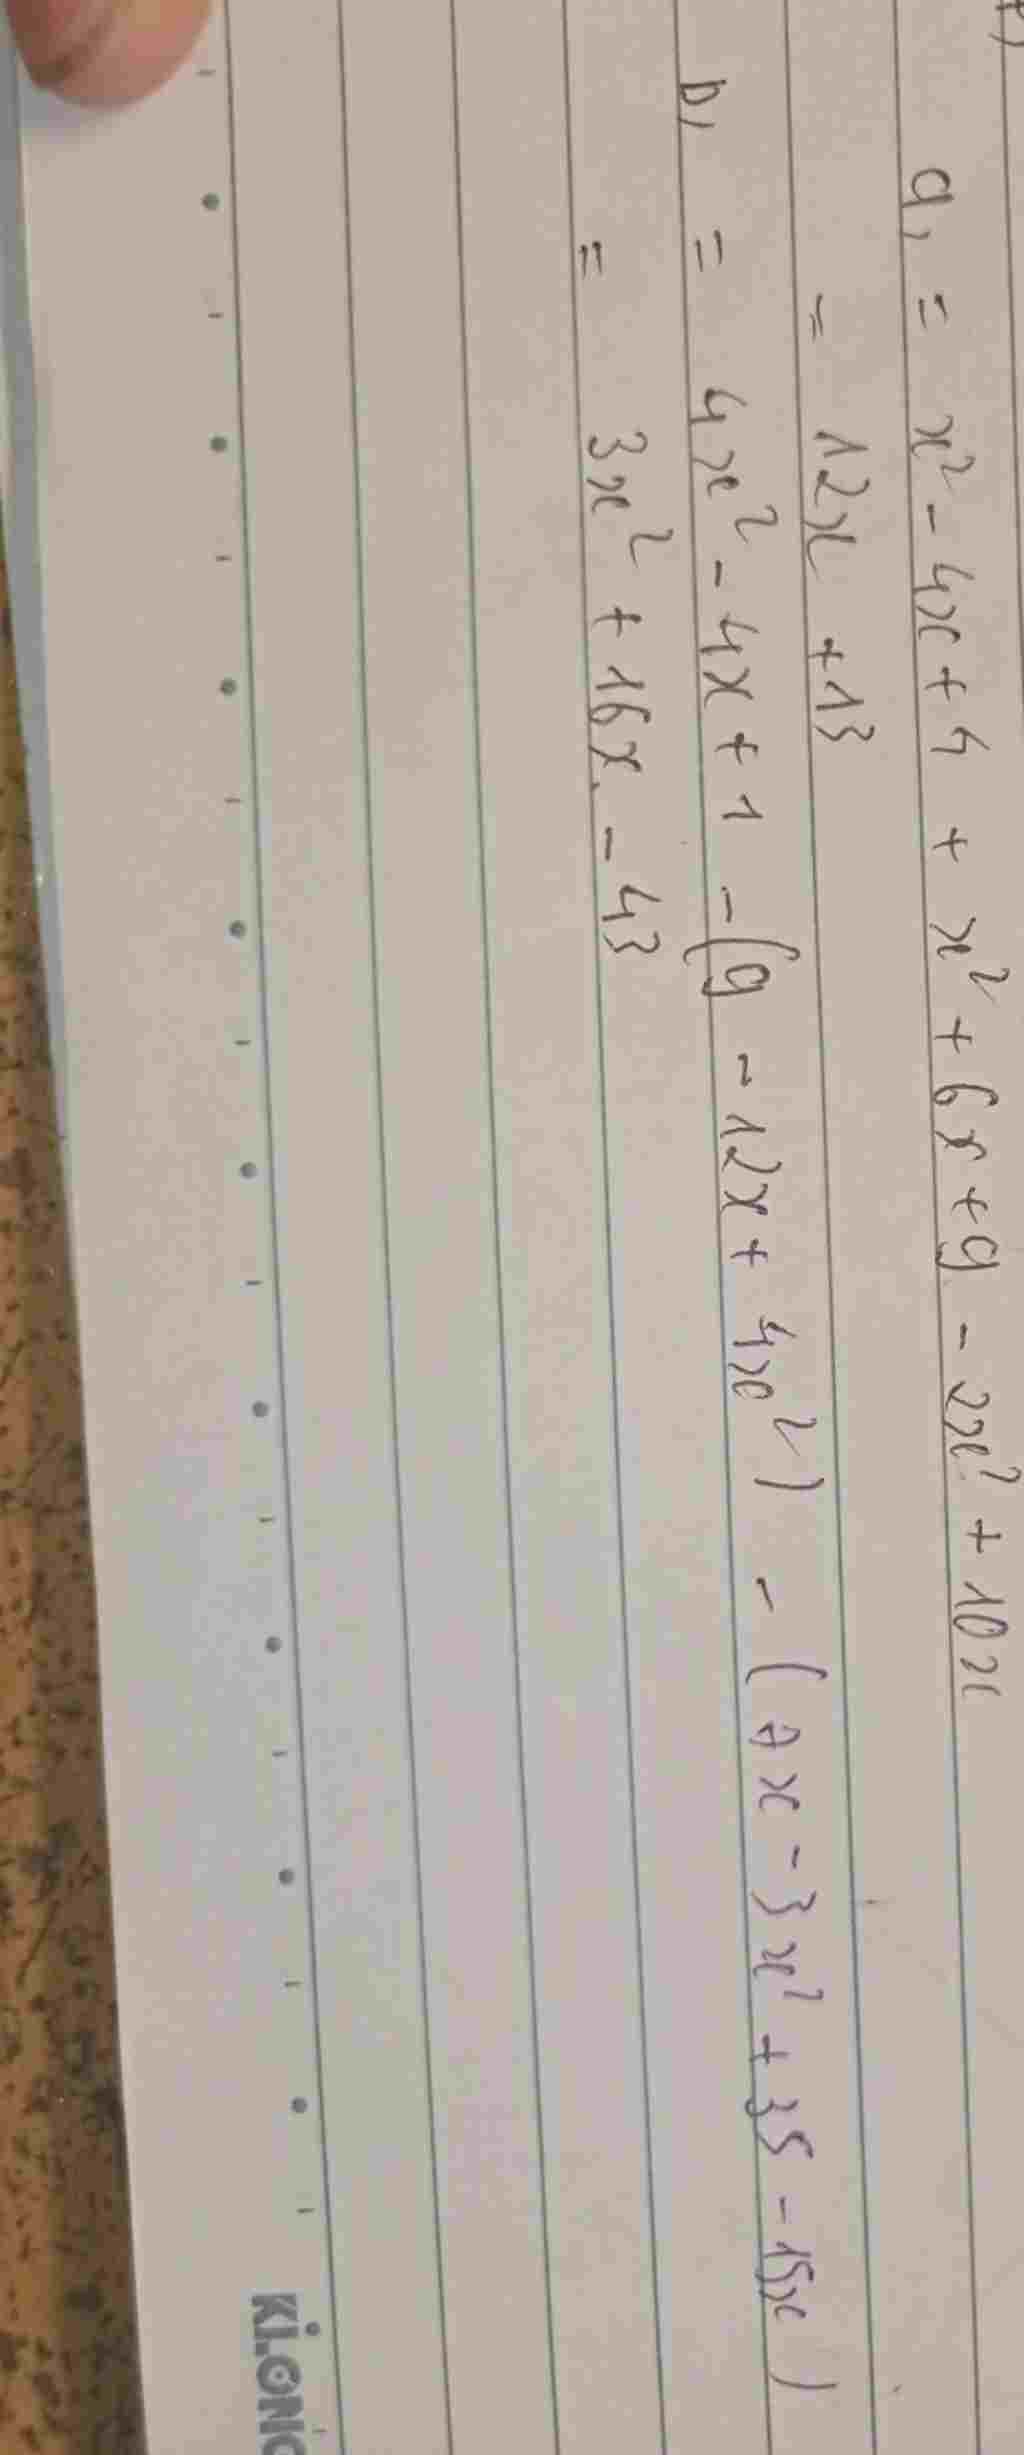 a, = x² - 4x + 4 + x² + 6x + 9 - 2x² + 10x
= 12x + 13
b, = 4x² - 4x + 1 - (9 - 12x + 4x²) - (7x - 3x² + 35 - 15x)
= 3x² + 16x - 43
KLONG